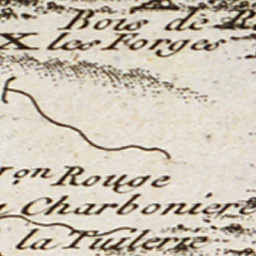 Bois de
les Forges
on Rouge
Charboniere
la Tuilerie